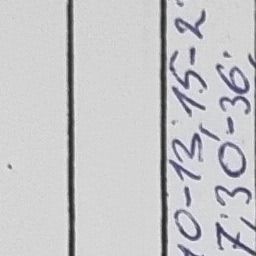 10-13, 15-2
7, 30-36.